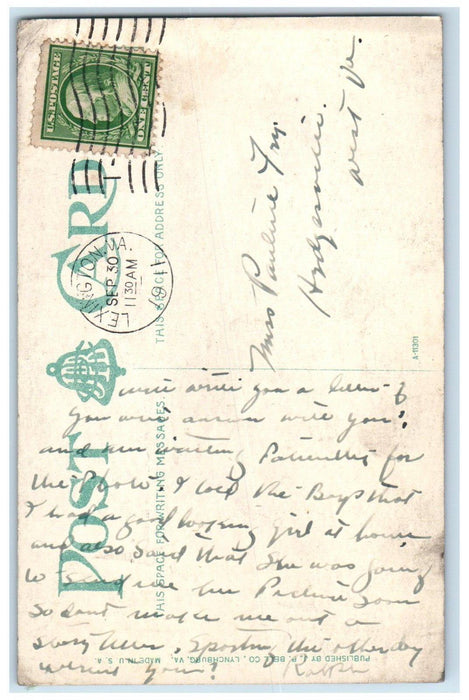 U.S. POSTAGE
ONE CENT
LEXINGTON, VA.
SEP 30
11 30 AM
191
POST CARD
THIS SPACE FOR WRITING MESSAGES
THIS SPACE FOR ADDRESS ONLY
Miss Pauline Fry
Hedgesville
West Va.
A-11301
PUBLISHED BY J. P. BELL CO., LYNCHBURG, VA. MADE IN U. S. A.
will write you a letter if
you will answer will you?
and am waiting Patiently for
the Photo. I told the Boys that
I had a good looking girl at home
and also said that She was going
to send me her Picture soon
So dont make me out a
story teller, Sporting the other day
werent you? Ralph